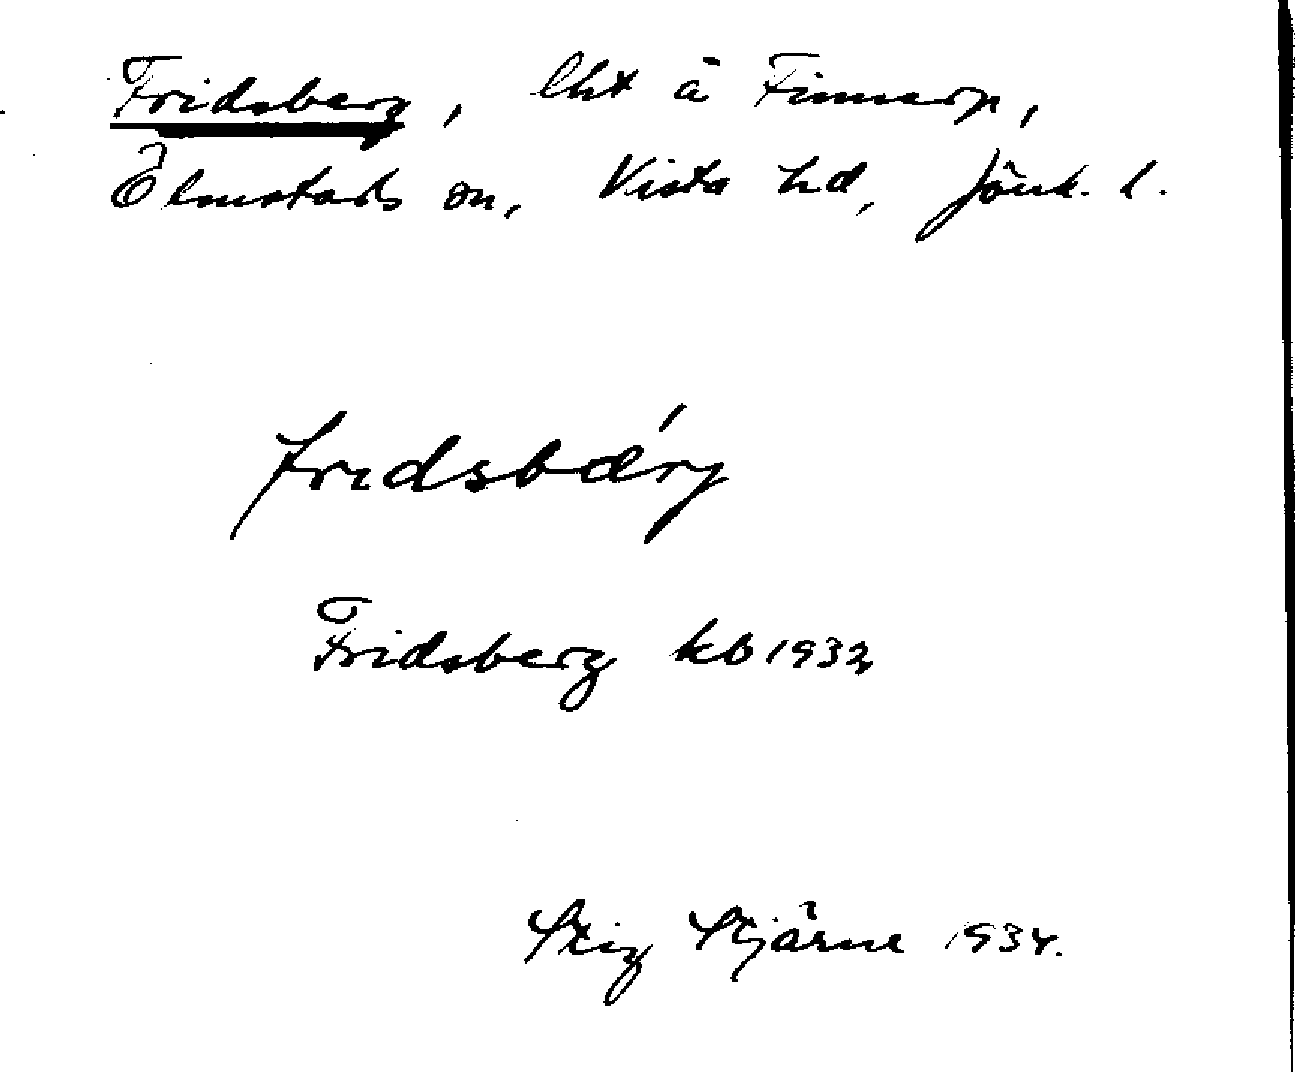 Fridsberg, lht å Finnarp,
Ölmstads sn, Vista hd, Jönk. l.
fridsbǽrj
Fridsberg kb 1932
Stig Stjärne 1934.